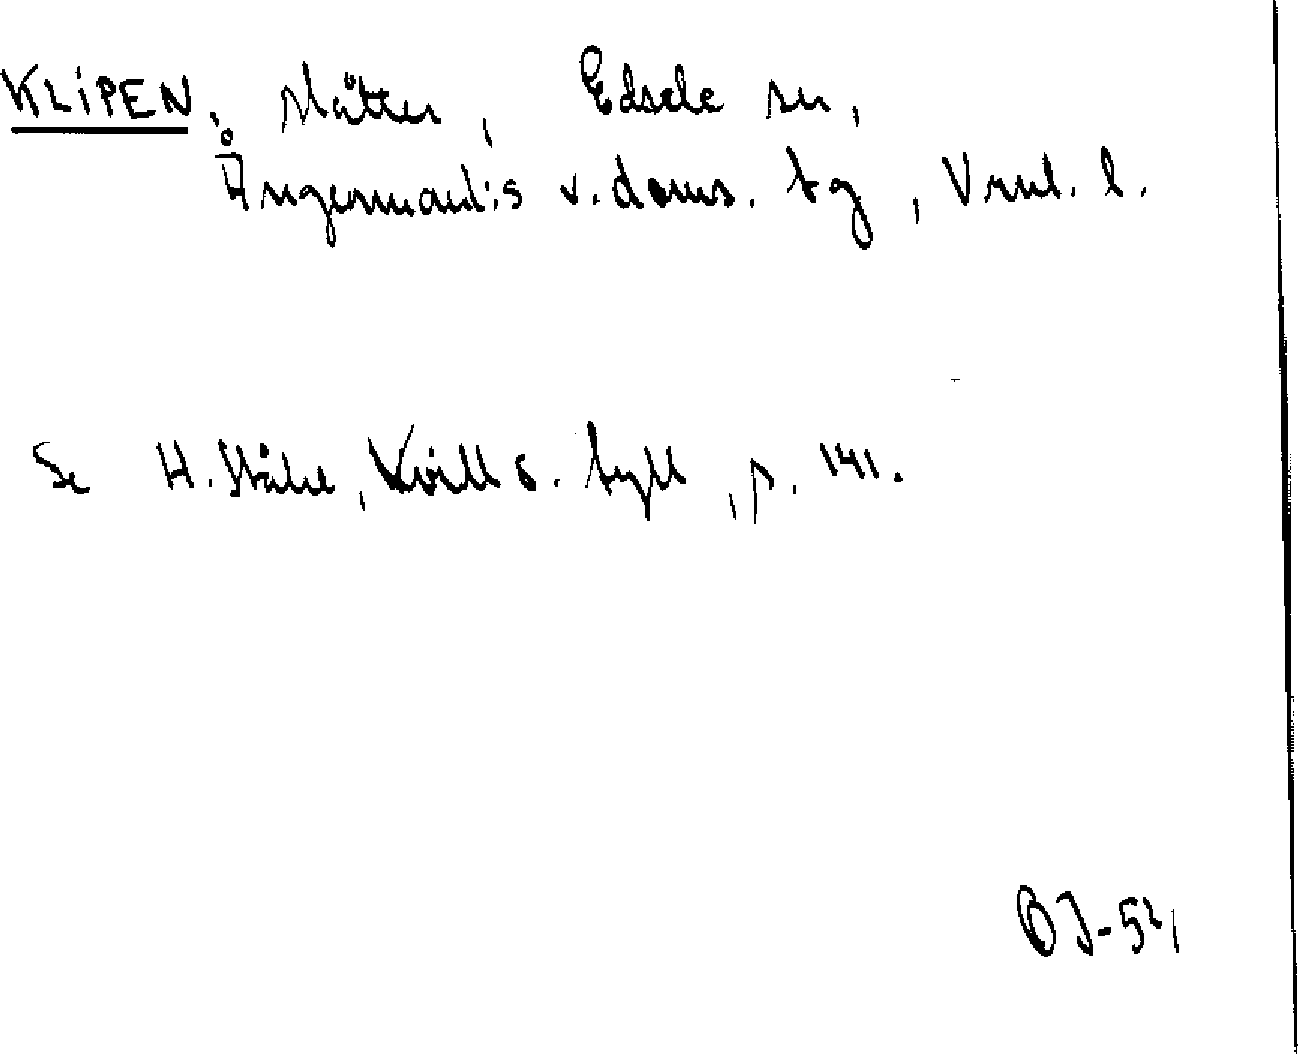 KLIPEN, slåtter, Edsele sn,
Ångermanl:s v. doms. tg, Vrnl. l.
Se H. Ståhl, Kvill o. tyll, p. 141.
OJ-52